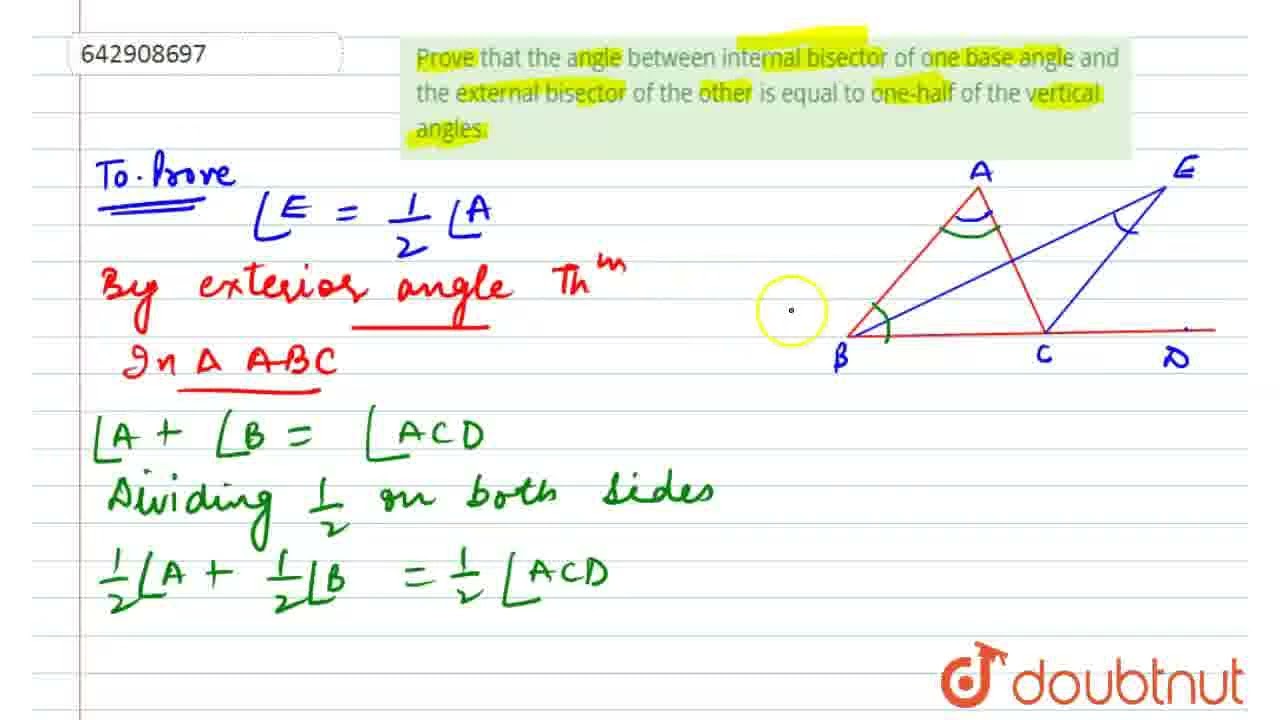 642908697
Prove that the angle between internal bisector of one base angle and
the external bisector of the other is equal to one-half of the vertical
angles.
To. Prove
∠E = 1/2 ∠A
By exterior angle Thm
In Δ ABC
∠A + ∠B = ∠ACD
Dividing 1/2 on both sides
1/2 ∠A + 1/2 ∠B = 1/2 ∠ACD
A E
B C D
doubtnut